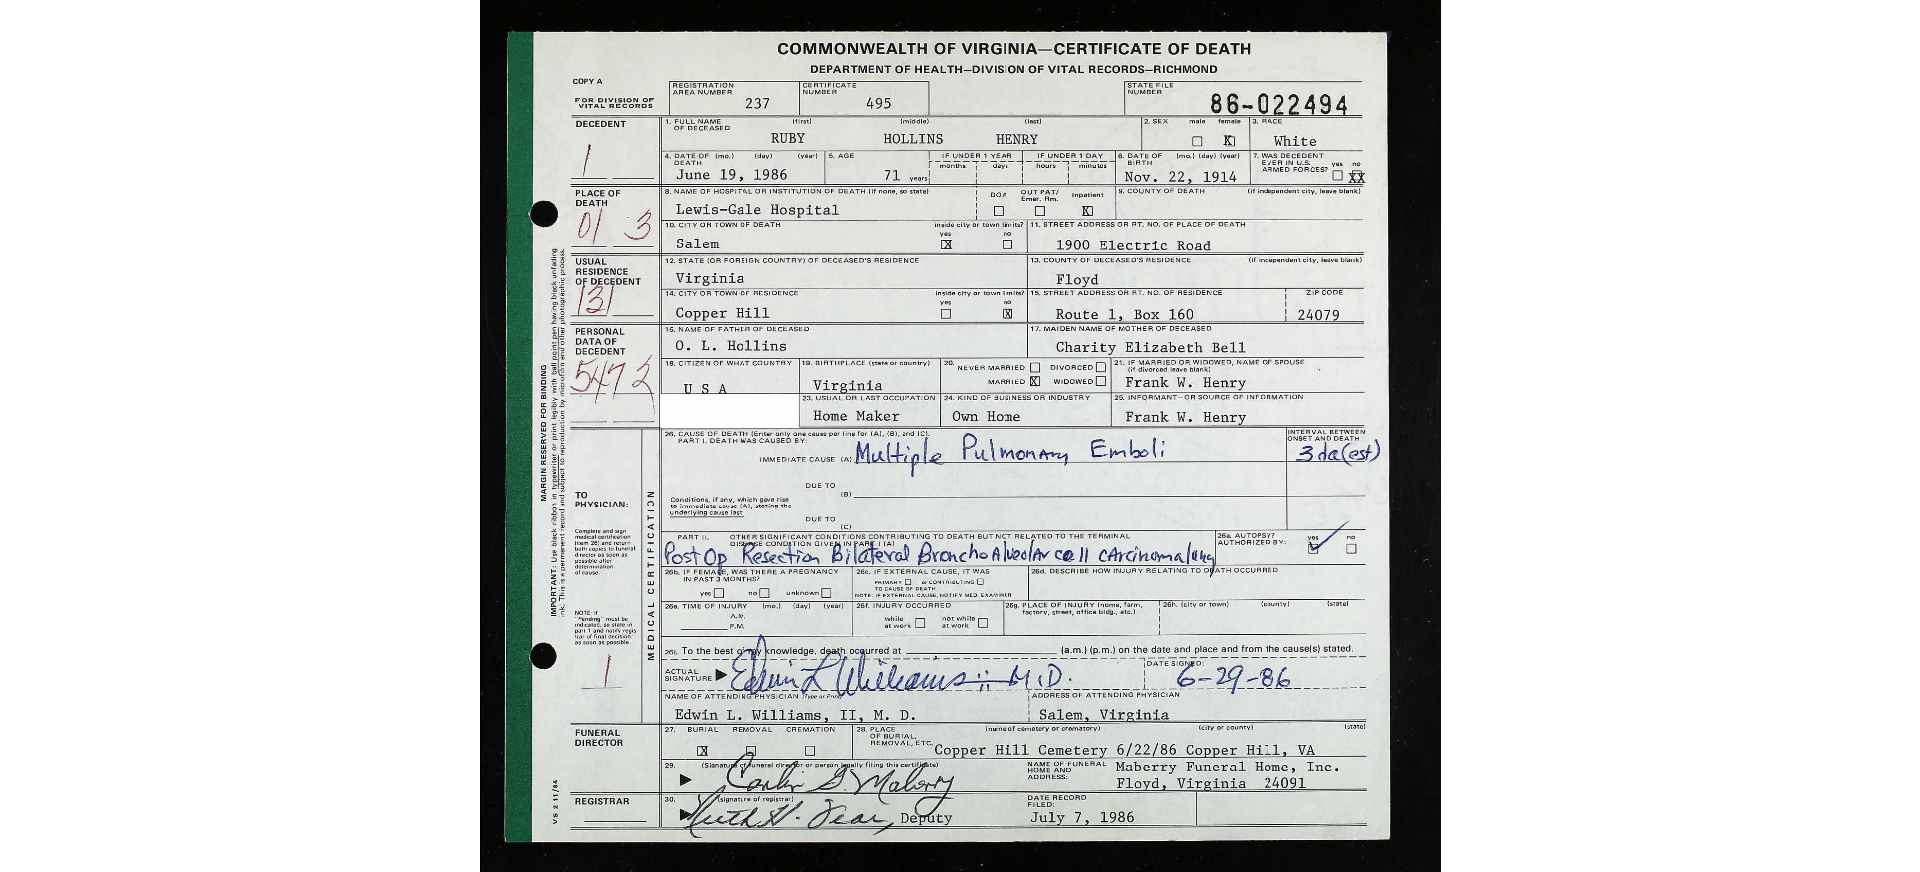 COMMONWEALTH OF VIRGINIA—CERTIFICATE OF DEATH
DEPARTMENT OF HEALTH—DIVISION OF VITAL RECORDS—RICHMOND
COPY A
FOR DIVISION OF VITAL RECORDS
REGISTRATION AREA NUMBER 237
CERTIFICATE NUMBER 495
STATE FILE NUMBER 86-022494
DECEDENT
1
1. FULL NAME OF DECEASED (first) (middle) (last)
RUBY HOLLINS HENRY
2. SEX male female X
3. RACE White
4. DATE OF DEATH (mo.) (day) (year)
June 19, 1986
5. AGE 71 years
IF UNDER 1 YEAR months days
IF UNDER 1 DAY hours minutes
6. DATE OF BIRTH (mo.) (day) (year)
Nov. 22, 1914
7. WAS DECEDENT EVER IN U.S. ARMED FORCES? yes no XX
PLACE OF DEATH
01 3
8. NAME OF HOSPITAL OR INSTITUTION OF DEATH (if none, so state)
Lewis-Gale Hospital
DOA OUT PAT/ Emer. Rm. Inpatient X
9. COUNTY OF DEATH (if independent city, leave blank)
10. CITY OR TOWN OF DEATH inside city or town limits? yes no
Salem X
11. STREET ADDRESS OR RT. NO. OF PLACE OF DEATH
1900 Electric Road
USUAL RESIDENCE OF DECEDENT
131
12. STATE (OR FOREIGN COUNTRY) OF DECEASED'S RESIDENCE
Virginia
13. COUNTY OF DECEASED'S RESIDENCE (if independent city, leave blank)
Floyd
14. CITY OR TOWN OF RESIDENCE inside city or town limits? yes no
Copper Hill X
15. STREET ADDRESS OR RT. NO. OF RESIDENCE ZIP CODE
Route 1, Box 160 24079
PERSONAL DATA OF DECEDENT
5472
16. NAME OF FATHER OF DECEASED
O. L. Hollins
17. MAIDEN NAME OF MOTHER OF DECEASED
Charity Elizabeth Bell
18. CITIZEN OF WHAT COUNTRY
U S A
19. BIRTHPLACE (state or country)
Virginia
20. NEVER MARRIED DIVORCED
MARRIED X WIDOWED
21. IF MARRIED OR WIDOWED, NAME OF SPOUSE (if divorced leave blank)
Frank W. Henry
23. USUAL OR LAST OCCUPATION
Home Maker
24. KIND OF BUSINESS OR INDUSTRY
Own Home
25. INFORMANT—OR SOURCE OF INFORMATION
Frank W. Henry
MARGIN RESERVED FOR BINDING
IMPORTANT: Use black ribbon in typewriter or print legibly with ball point pen having black unfading
ink. This is a permanent record and subject to reproduction by microfilm and other photographic process.
TO PHYSICIAN:
Complete and sign
medical certification
(item 26) and return
both copies to funeral
director as soon as
possible after
determination
of cause.
NOTE: If
"Pending" must be
indicated, so state in
part 1 and notify regis
trar of final decision
as soon as possible.
1
MEDICAL CERTIFICATION
26. CAUSE OF DEATH (Enter only one cause per line for (A), (B), and (C).
PART I. DEATH WAS CAUSED BY:
IMMEDIATE CAUSE (A) Multiple Pulmonary Emboli
INTERVAL BETWEEN ONSET AND DEATH
3 da (est)
DUE TO (B)
Conditions, if any, which gave rise
to immediate cause (A), stating the
underlying cause last
DUE TO (C)
PART II. OTHER SIGNIFICANT CONDITIONS CONTRIBUTING TO DEATH BUT NOT RELATED TO THE TERMINAL
DISEASE CONDITION GIVEN IN PART I (A)
Post Op Resection Bilateral BronchoAlveolar cell cArcinoma lung
26a. AUTOPSY? AUTHORIZED BY: yes no
26b. IF FEMALE, WAS THERE A PREGNANCY IN PAST 3 MONTHS?
yes no unknown
26c. IF EXTERNAL CAUSE, IT WAS
PRIMARY or CONTRIBUTING
TO CAUSE OF DEATH
NOTE: IF EXTERNAL CAUSE, NOTIFY MED. EXAMINER
26d. DESCRIBE HOW INJURY RELATING TO DEATH OCCURRED
26e. TIME OF INJURY (mo.) (day) (year)
A.M.
P.M.
26f. INJURY OCCURRED
while at work not while at work
26g. PLACE OF INJURY (home, farm, factory, street, office bldg., etc.)
26h. (city or town) (county) (state)
26i. To the best of my knowledge, death occurred at (a.m.) (p.m.) on the date and place and from the cause(s) stated.
ACTUAL SIGNATURE Edwin L Williams II M.D.
DATE SIGNED: 6-29-86
NAME OF ATTENDING PHYSICIAN (Type or Print)
Edwin L. Williams, II, M. D.
ADDRESS OF ATTENDING PHYSICIAN
Salem, Virginia
FUNERAL DIRECTOR
27. BURIAL REMOVAL CREMATION
X
28. PLACE OF BURIAL, REMOVAL, ETC. (name of cemetery or crematory) (city or county) (state)
Copper Hill Cemetery 6/22/86 Copper Hill, VA
29. (Signature of funeral director or person legally filing this certificate)
NAME OF FUNERAL HOME AND ADDRESS:
Maberry Funeral Home, Inc.
Floyd, Virginia 24091
REGISTRAR
30. (signature of registrar)
Deputy
DATE RECORD FILED:
July 7, 1986
VS 2 11/84